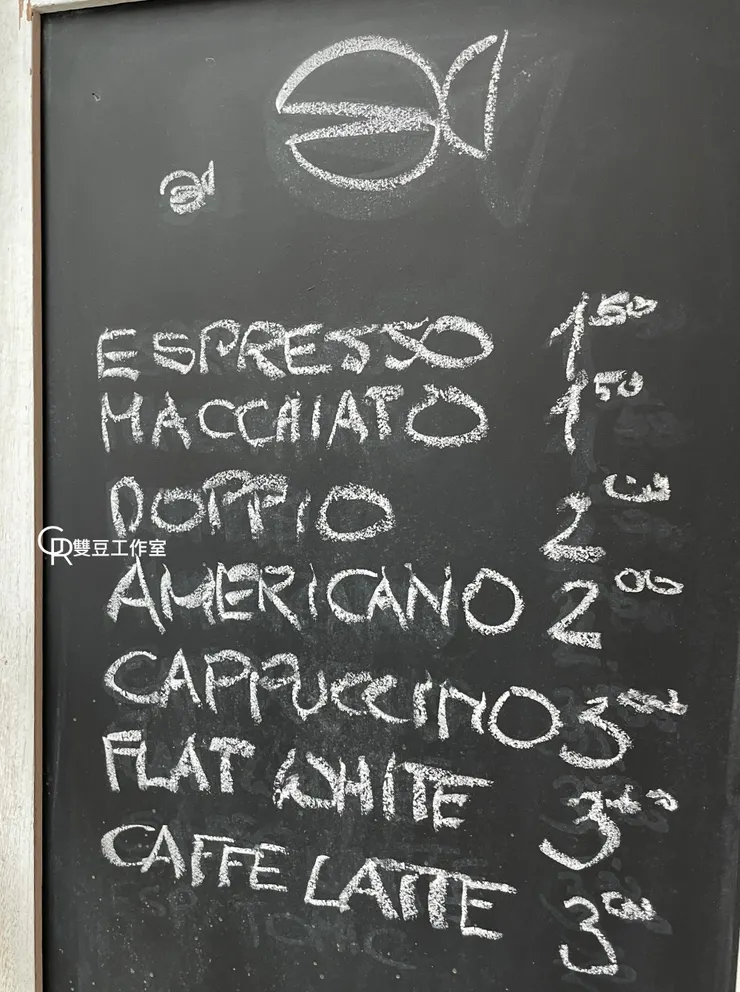 ESPRESSO 1 50
MACCHIATO 1 50
DOPPIO 2
雙豆工作室
AMERICANO 2
CAPPUCCINO 3
FLAT WHITE 3
CAFFE LATTE 3